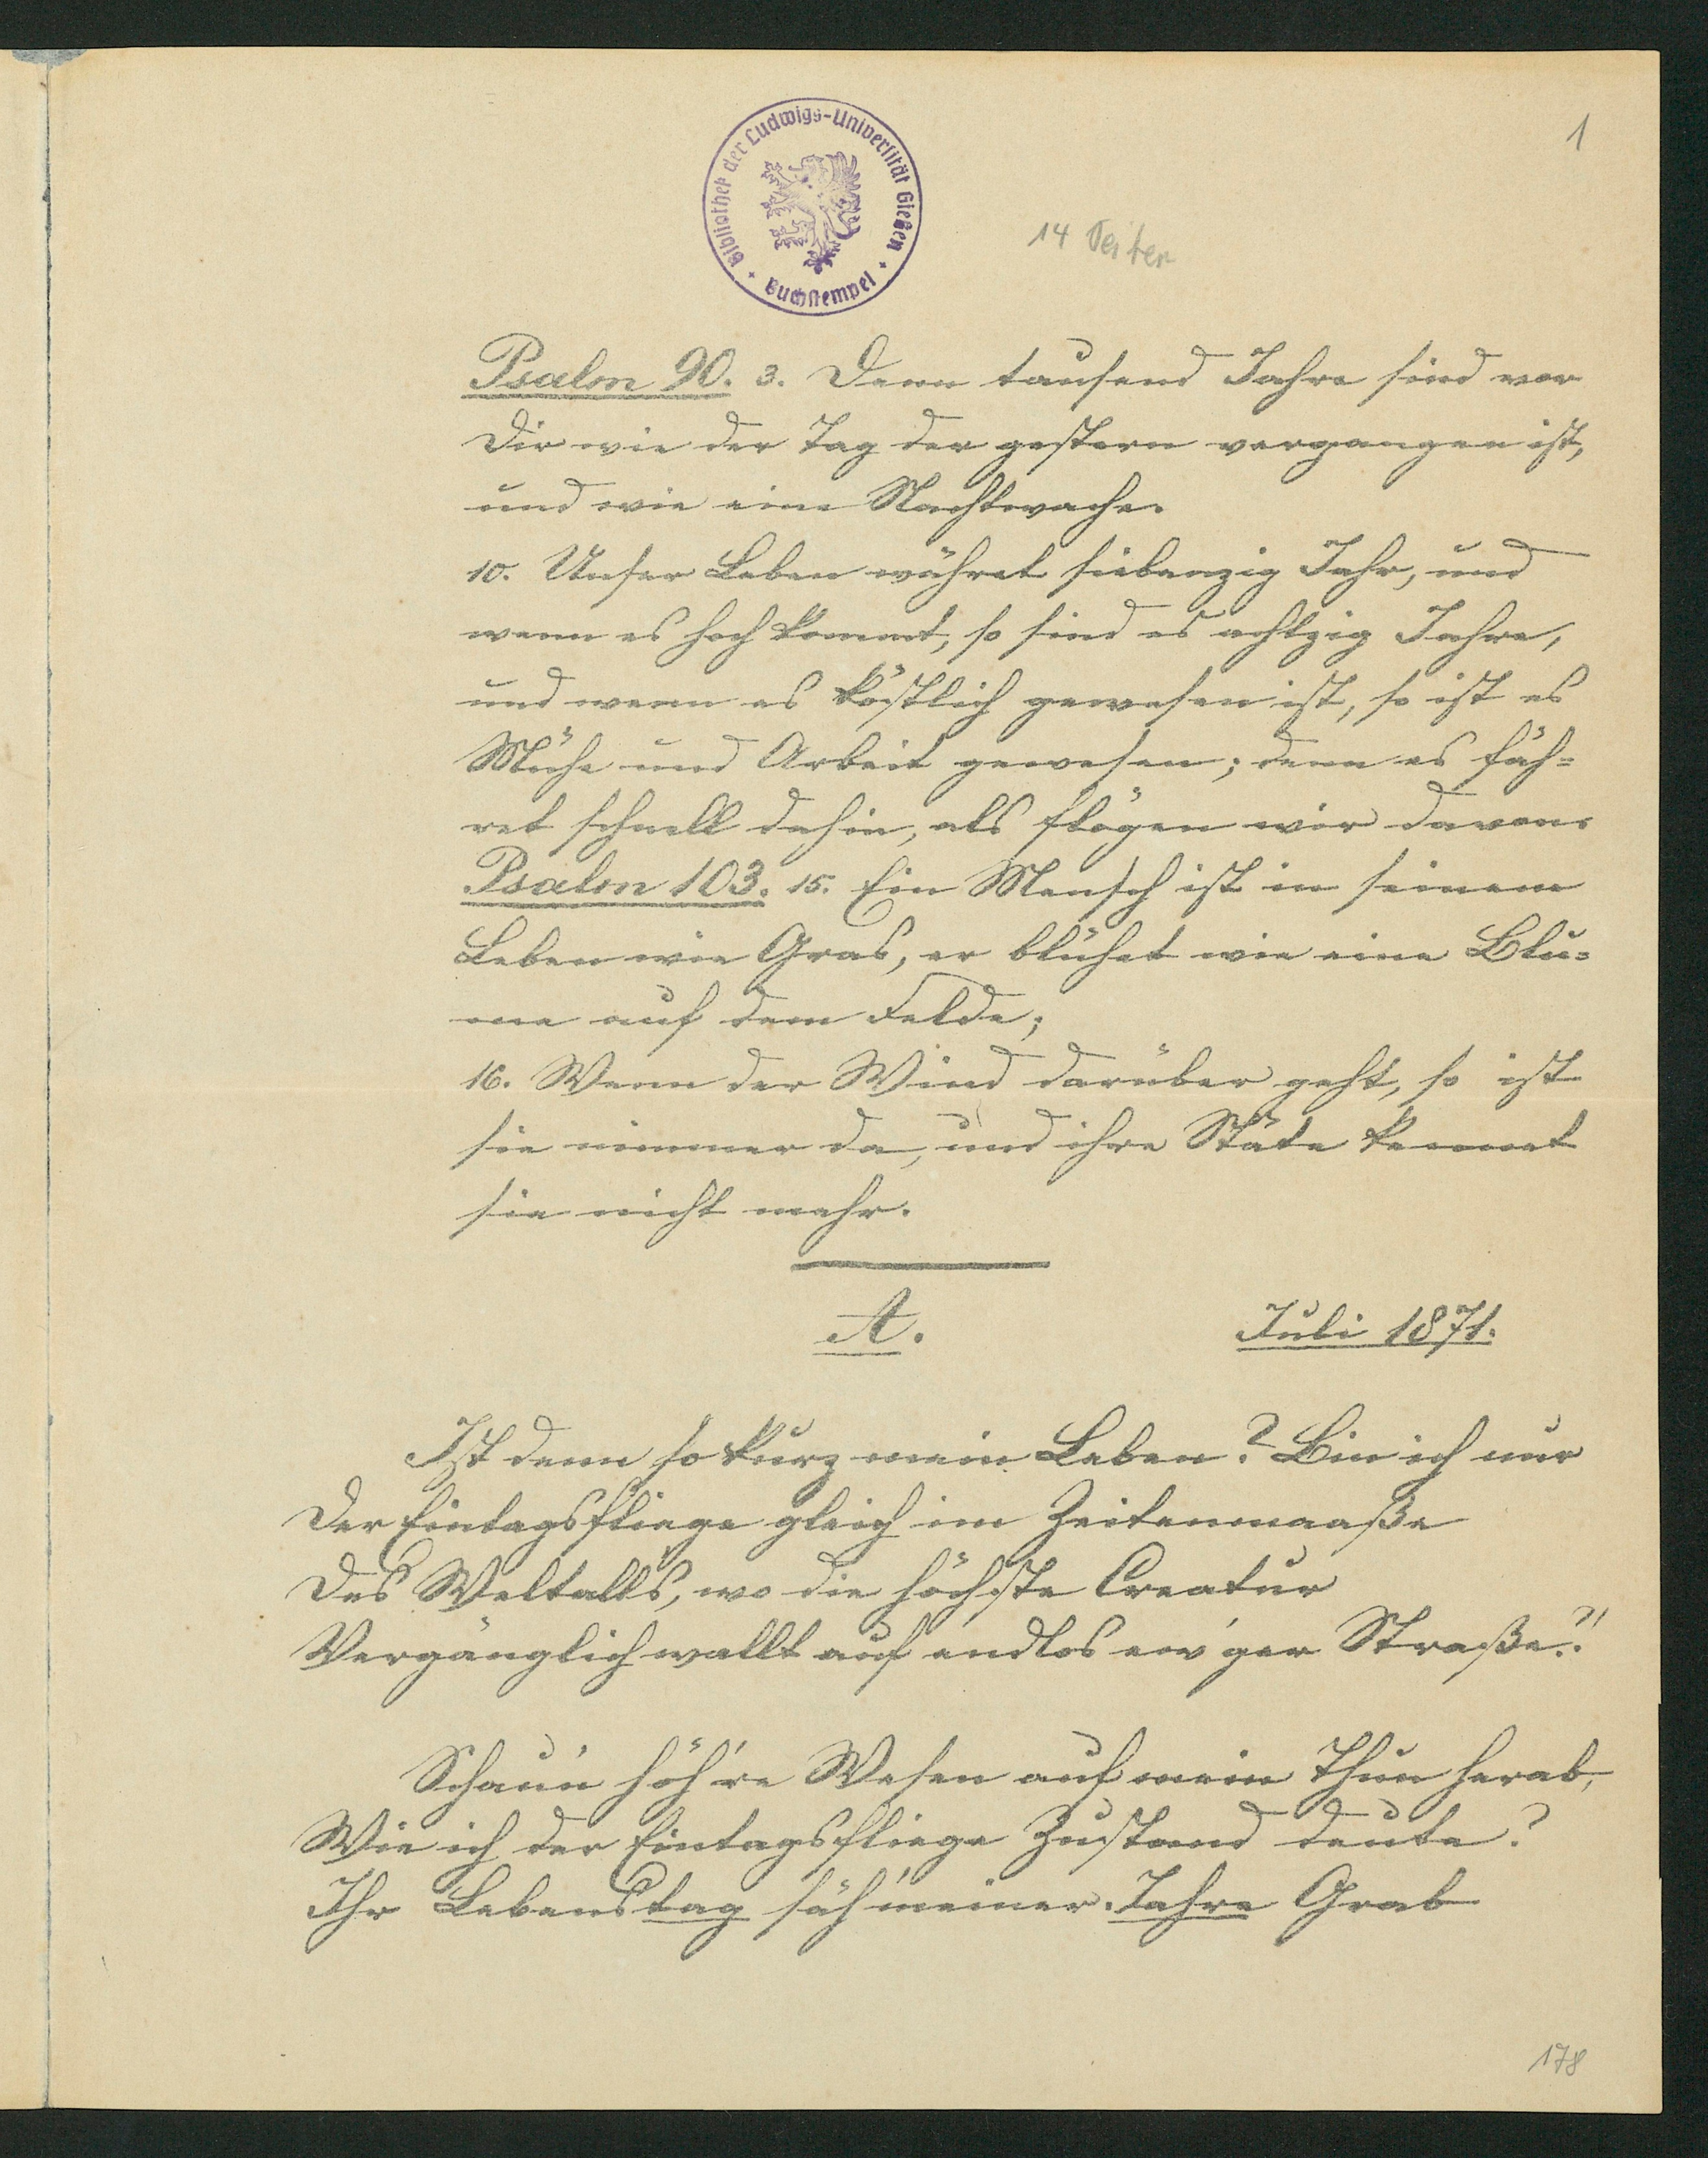 1
Bibliothek der Ludwigs-Universität Gießen
Buchstempel
14 Seiten
Psalm 90. 3. Denn tausend Jahre sind vor
Dir wie der Tag der gestern vergangen ist,
und wie eine Nachtwache.
10. Unser Leben währet siebenzig Jahr, und
wenn es hoch kommt, so sind es achtzig Jahre,
und wenn es köstlich gewesen ist, so ist es
Mühe und Arbeit gewesen; denn es fäh=
ret schnell dahin, als flögen wir davon.
Psalm 103. 15. Ein Mensch ist in seinem
Leben wie Gras, er blühet wie eine Blu=
me auf dem Felde;
16. Wenn der Wind darüber geht, so ist
sie nimmer da, und ihre Stäte kennet
sie nicht mehr.
A.
Juli 1871.
Ist denn so kurz mein Leben? Bin ich nur
Der Eintagsfliege gleich im Zeitenmaaße
Des Weltalls, wo die höchste Creatur
Vergänglich wallt auf endlos ew'ger Straße?!
Schau'n höh're Wesen auf mein Thun herab,
Wie ich der Eintagsfliege Zustand deute?
Ihr Lebenstag säh' meiner Jahre Grab
178